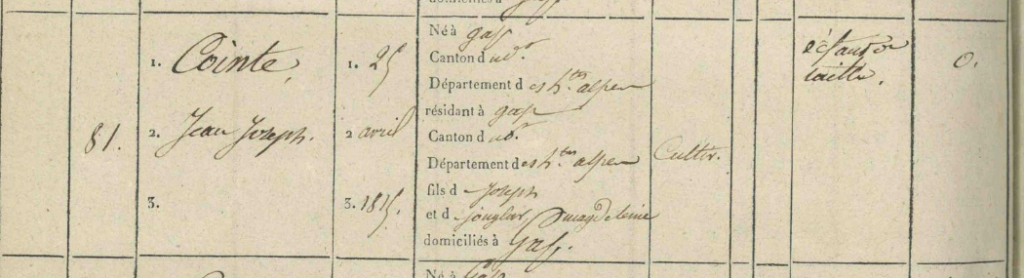 81.
1. Cointe,
2. Jean Joseph.
3.
1. 25
2 avril
3. 1815.
Né à gap
Canton d ud.
Département des h.tes alpes
résidant à gap
Canton d ud.
Département des h.tes alpes
fils d Joseph
et d jouglar, magdeleine
domiciliés à Gap.
Cultiv.
taille.
0.
Né à Gap